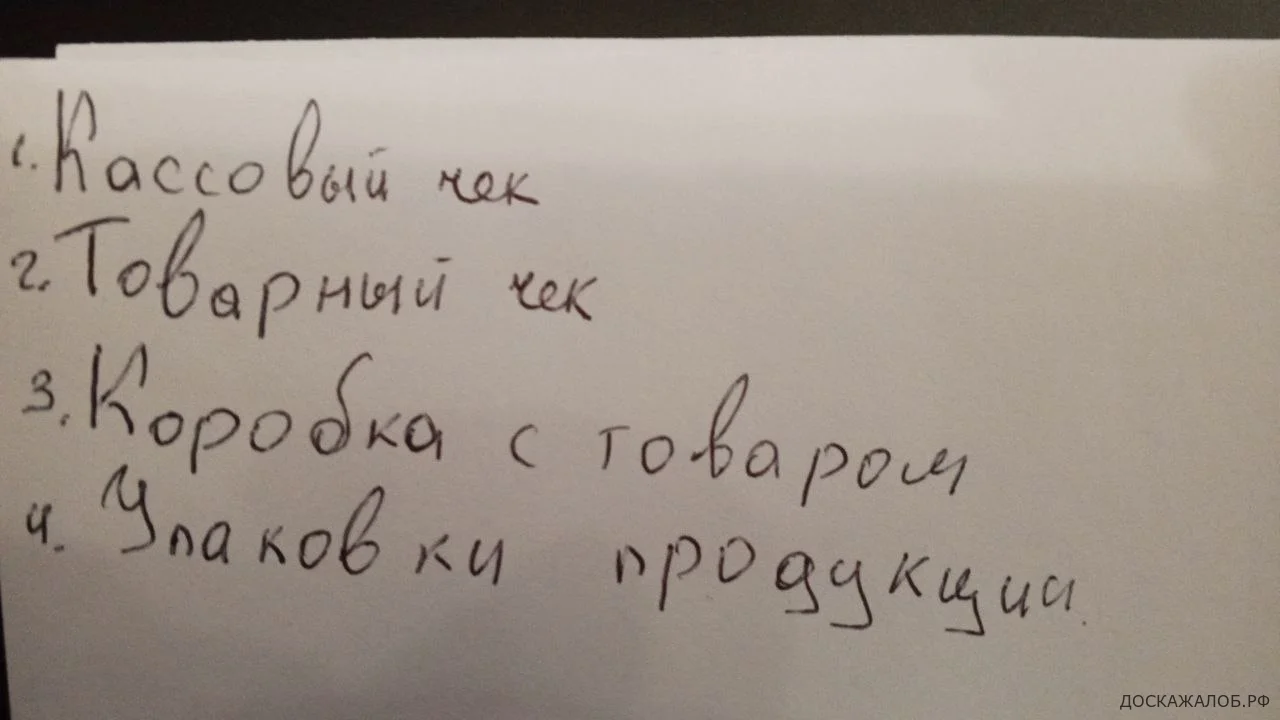 1. Кассовый чек
2. Товарный чек
3. Коробка с товаром
4. Упаковки продукции
ДОСКАЖАЛОБ.РФ